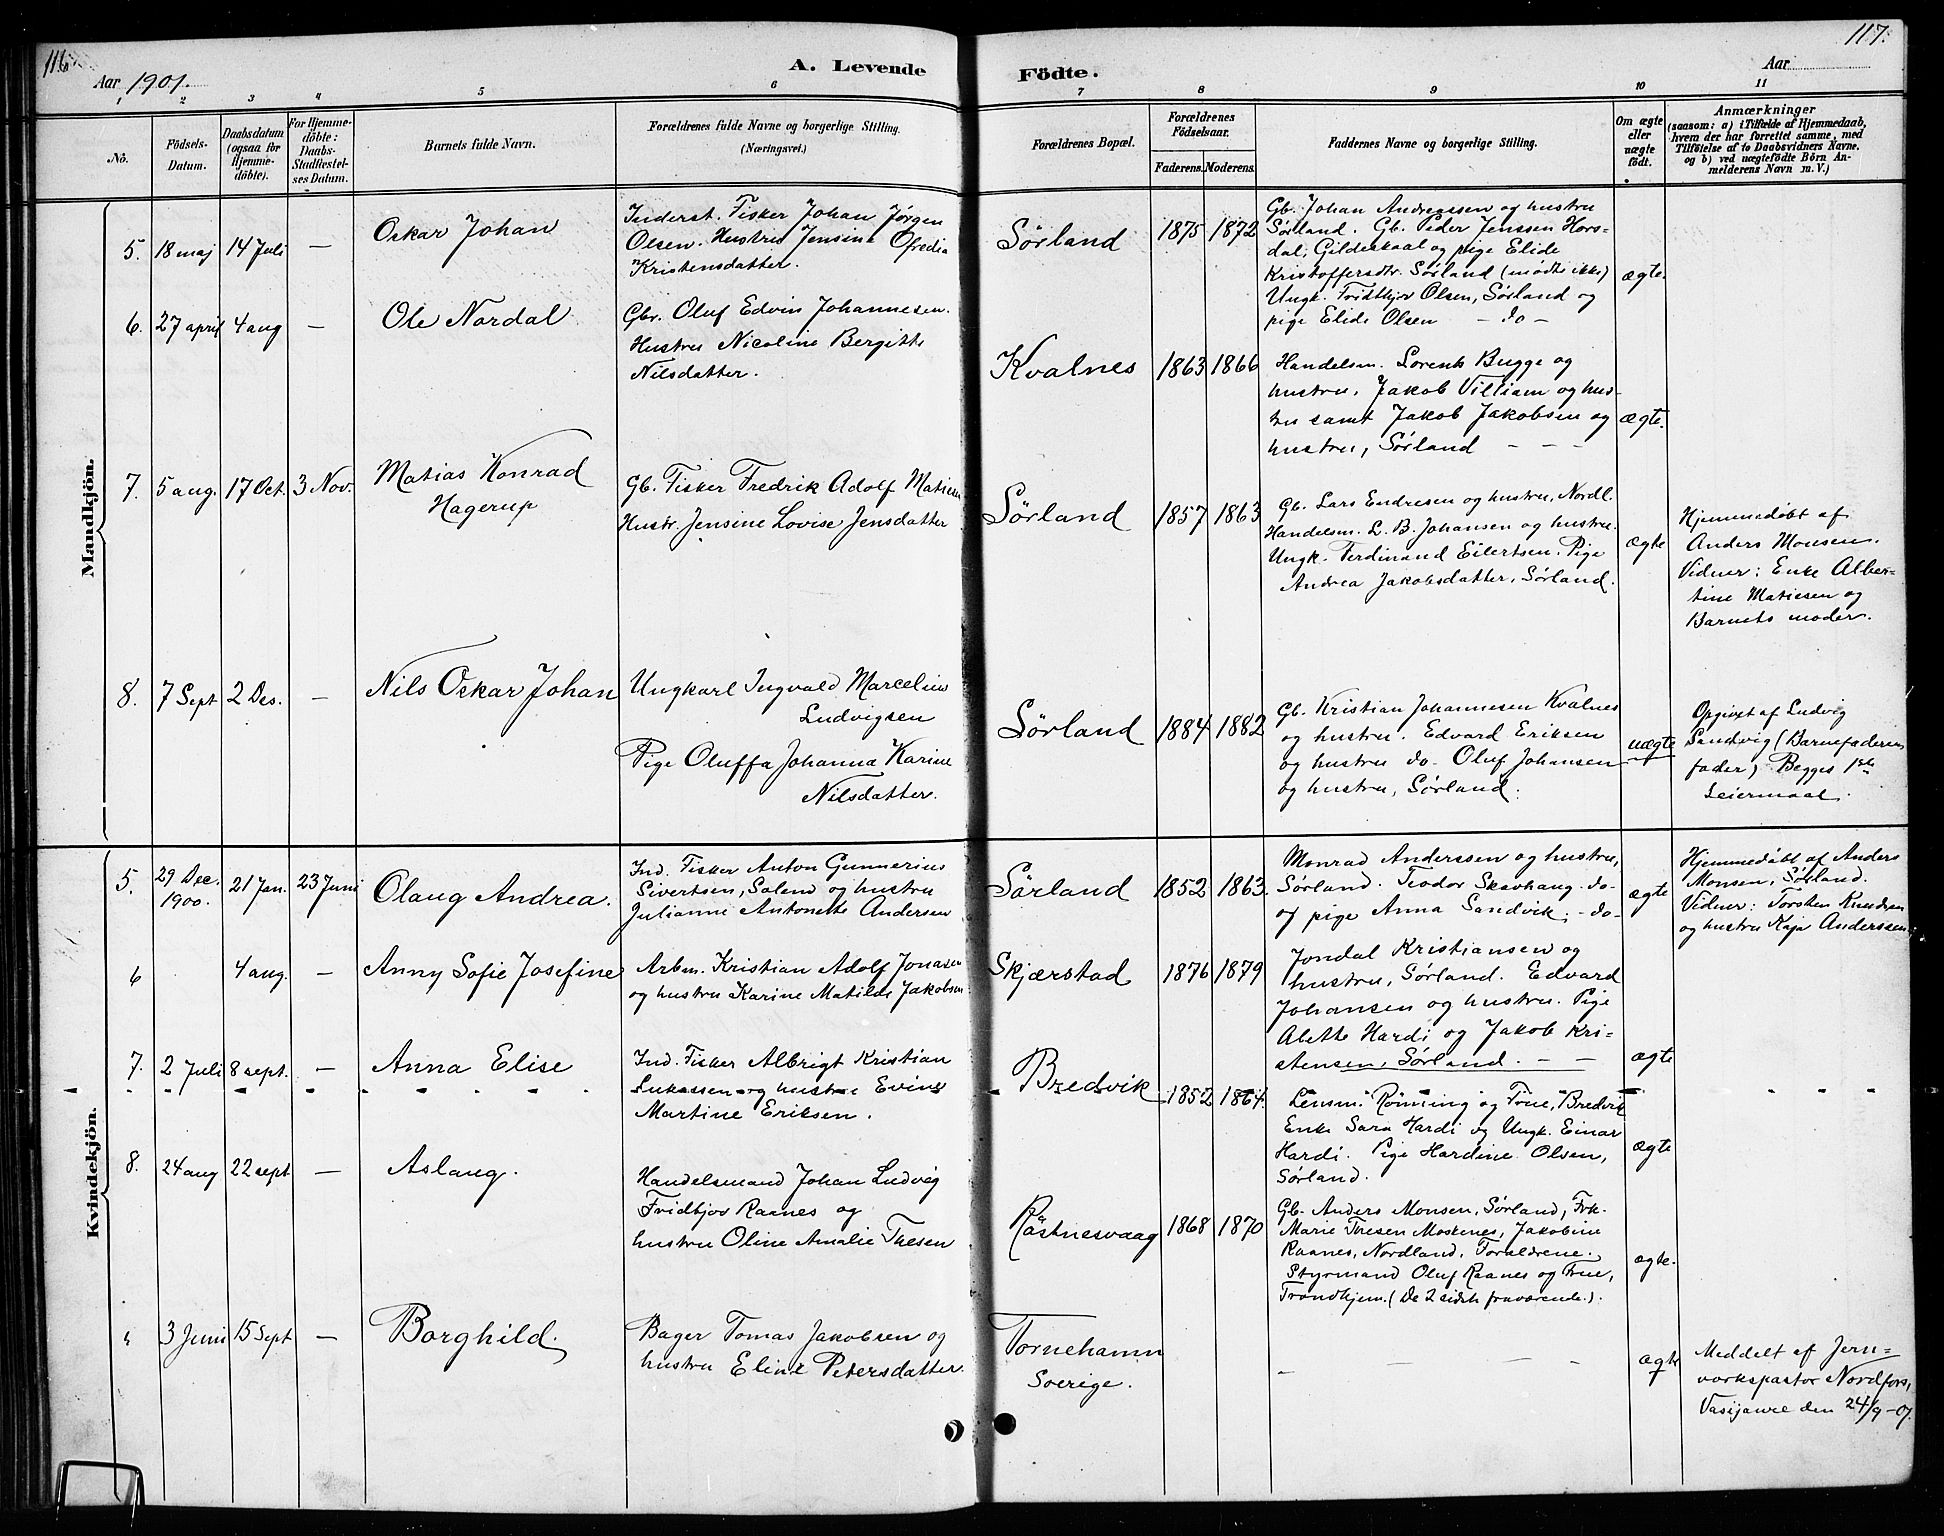 116.
117.
Aar 1901.
A. Levende
Födte.
Aar
1
2
3
4
5
6
7
8
9
10
11
No.
Födsels-
Datum.
Daabsdatum
(ogsaa for
Hjemme-
döbte).
For Hjemme-
döbte:
Daabs-
Stadfæstel-
ses Datum.
Barnets fulde Navn.
Forældrenes fulde Navne og borgerlige Stilling.
(Næringsvei.)
Forældrenes Bopæl.
Forældrenes
Födselsaar.
Faderens.
Moderens.
Faddernes Navne og borgerlige Stilling.
Om ægte
eller
uægte
födt.
Anmærkninger
(saasom: a) i Tilfælde af Hjemmedaab,
hvem der har forrettet samme, med
Tilföielse af to Daabsvidners Navne.
og b) ved uægtefödte Börn An-
melderens Navn m. V.)
Mandkjön.
5. 18 maj 14 Juli —
Oskar Johan
Inderst. Fisker Johan Jørgen
Olsen. Hustru Jensine Ofredia
Kristensdatter.
Sørland
1875 1872
Gb. Johan Andreassen og hustru
Sørland. Gb. Peder Jenssen Hors-
dal, Gildeskaal og pige Elide
Kristoffersdtr. Sørland (mødte ikke)
Ungk. Fridtbjov Olsen, Sørland og
pige Elide Olsen — do —
ægte.
6. 27 april 4 aug —
Ole Nordal
Gbr. Oluf Edvin Johannesen.
Hustru Nicoline Bergitte
Nilsdatter.
Kvalnes
1863 1866
Handelsm. Lorents Bugge og
hustru, Jakob Villiam og hus-
tru samt Jakob Jakobsen og
hustru, Sørland — — —
ægte.
7. 5 aug. 17 Oct. 3 Nov.
Matias Konrad
Hagerup
Gb. Fisker Fredrik Adolf Matisen
Hustr. Jensine Lovise Jensdatter
Sørland
1857 1863
Gb. Lars Endresen og hustru, Nordl.
Handelsm. L. B. Johansen og hustru.
Ungk. Ferdinand Eilertsen. Pige
Andrea Jakobsdatter, Sørland.
ægte
Hjemmedøbt af
Anders Monsen.
Vidner: Enke Alber-
tine Matiesen og
Barnets moder.
8. 7 Sept 2 Des. —
Nils Oskar Johan
Ungkarl Ingvald Marcelius
Ludvigsen
Pige Oluffa Johanna Karine
Nilsdatter.
Sørland
1884 1882
Gb. Kristian Johannesen Kvalnes
og hustru. Edvard Eriksen
og hustru do. Oluf Johansen
og hustru, Sørland.
uægte
Opgivet af Ludvig
Sandvig (Barnefaderens
fader) Begges 1ste
Leiermaal.
Kvindekjön.
5. 29 Dec. 1900. 21 Jan. 23 Juni
Olaug Andrea.
Ind. Fisker Anton Gunnerius
Sivertsen, Salend og hustru
Julianne Antonette Andersen
Sørland
1852 1863.
Monrad Anderssen og hustru,
Sørland. Teodor Skavhaug. do-
og pige Anna Sandvik. -do-
ægte
Hjemmedøbt af Anders
Monsen, Sørland.
Vidner: Torsten Knudsen
og hustru Kaja Anderssen.
6 4 aug. —
Anny Sofie Josefine
Arbm. Kristian Adolf Jonasen
og hustru Karine Matilde Jakobsen
Skjærstad
1876 1879
Jondal Kristiansen og
hustru, Sørland. Edvard
Johansen og hustru. Pige
Abette Hardi og Jakob Kri-
stensen, Sørland. — —
ægte
7. 2 Juli 8 sept. —
Anna Elise
Ind. Fisker Albrigt Kristian
Lukassen og hustru Evine
Martine Eriksen.
Bredvik
1852 1864.
Lensm. Rønning og Frue, Bredvik
Enke Sara Hardi og Ungk. Einar
Hardi. Pige Hardine Olsen,
Sørland.
ægte
8. 24 aug 22 sept —
Aslaug.
Handelsmand Johan Ludvig
Fridbjov Raanes og
hustru Oline Amalie Thesen
Røstnesvaag
1868 1870
Gb. Anders Monsen, Sørland, Frk.
Marie Thesen Moskenes, Jakobine
Raanes, Nordland, Forældrene.
Styrmand Oluf Raanes og Frue,
Trondhjem. (De 2 sidste fraværende.).
ægte.
3 Juni 15 Sept —
Borghild.
Bager Tomas Jakobsen og
hustru Eline Petersdatter.
Tornehamn
Sverige.
—
ægte
Meddelt af Jern-
værkspastor Nordfors,
Vasijaure den 24/9-01.